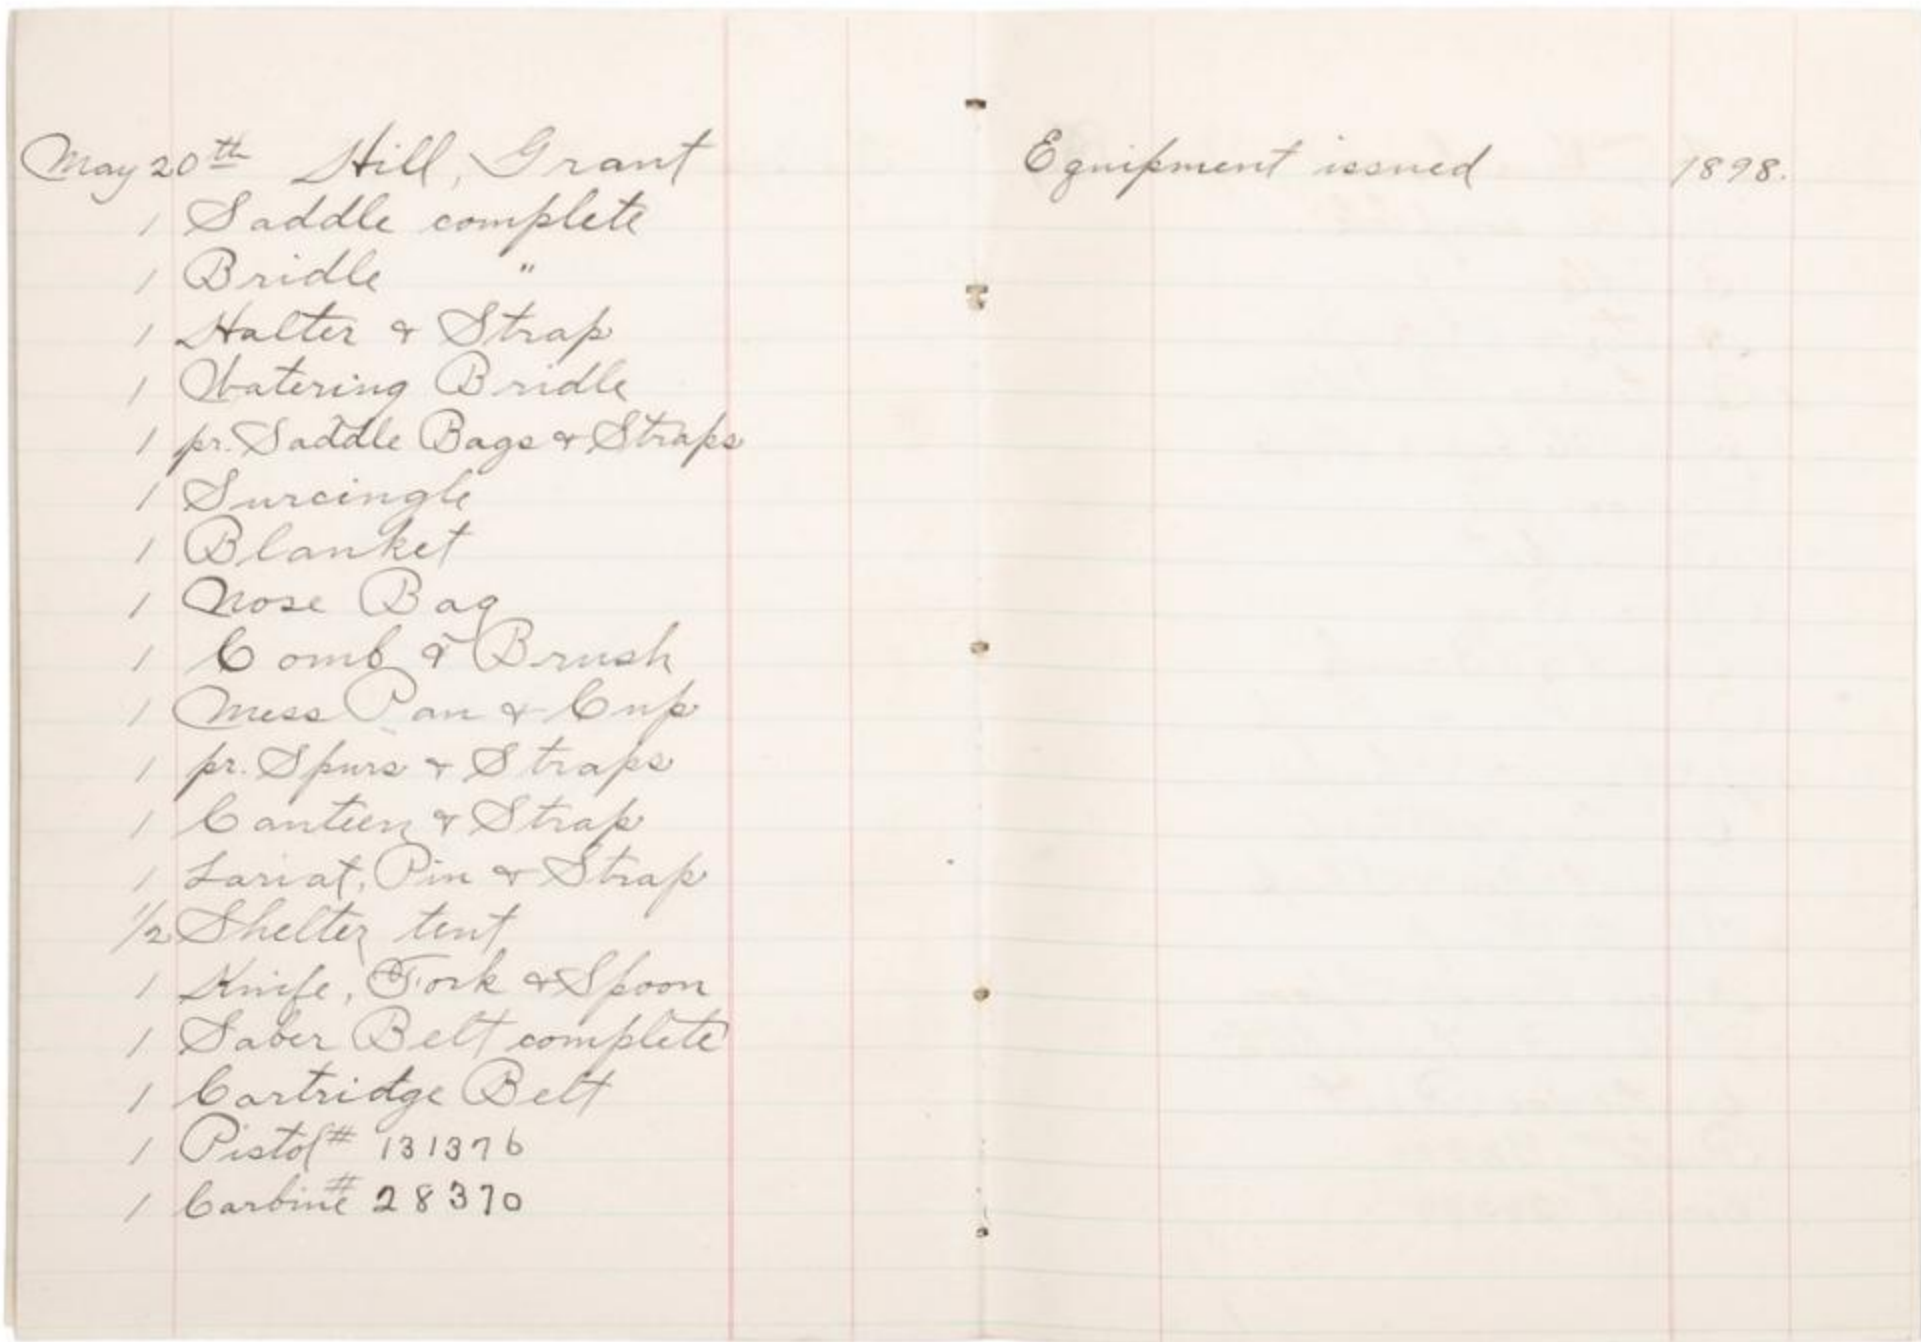 May 20th Hill, Grant
Equipment issued 1898.
1 Saddle complete
1 Bridle "
1 Halter & Strap
1 Watering Bridle
1 pr. Saddle Bags & Straps
1 Surcingle
1 Blanket
1 Nose Bag
1 Comb & Brush
1 Mess Pan & Cup
1 pr. Spurs & Straps
1 Canteen & Strap
1 Lariat, Pin & Strap
1/2 Shelter tent
1 Knife, Fork & Spoon
1 Saber Belt complete
1 Cartridge Belt
1 Pistol # 131376
1 Carbine # 28370